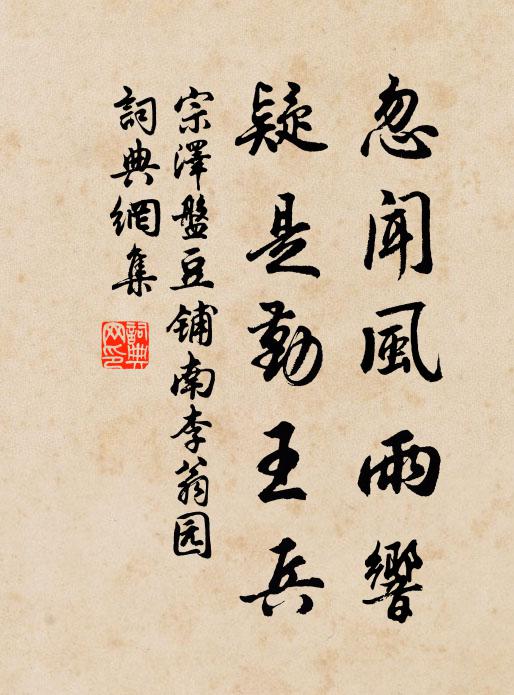 忽聞風雨響
疑是勤王兵
宗澤盤豆铺南李翁园
詞典網集
詞典网印